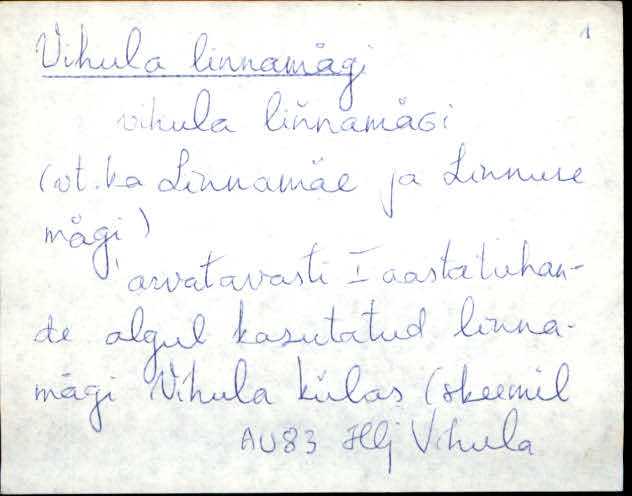 1
Vihula linnamägi
vihula liňnamäGi
(vt. ka Linnamäe ja Linnuse
mägi)
arvatavasti I aastatuhan-
de algul kasutatud linna-
mägi Vihula külas (skeemil
AU83 Hlj Vihula